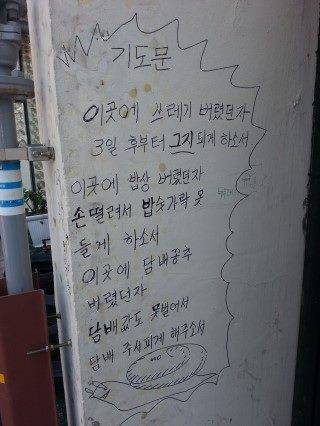 기도문
이곳에 쓰레기 버렸던자
3일 후부터 그지되게 하소서
이곳에 밥상 버렸던자
손떨려서 밥숫가락 못
들게 하소서
이곳에 담배꽁추
버렸던자
담배값도 못벌어서
담배 주서피게 해주소서